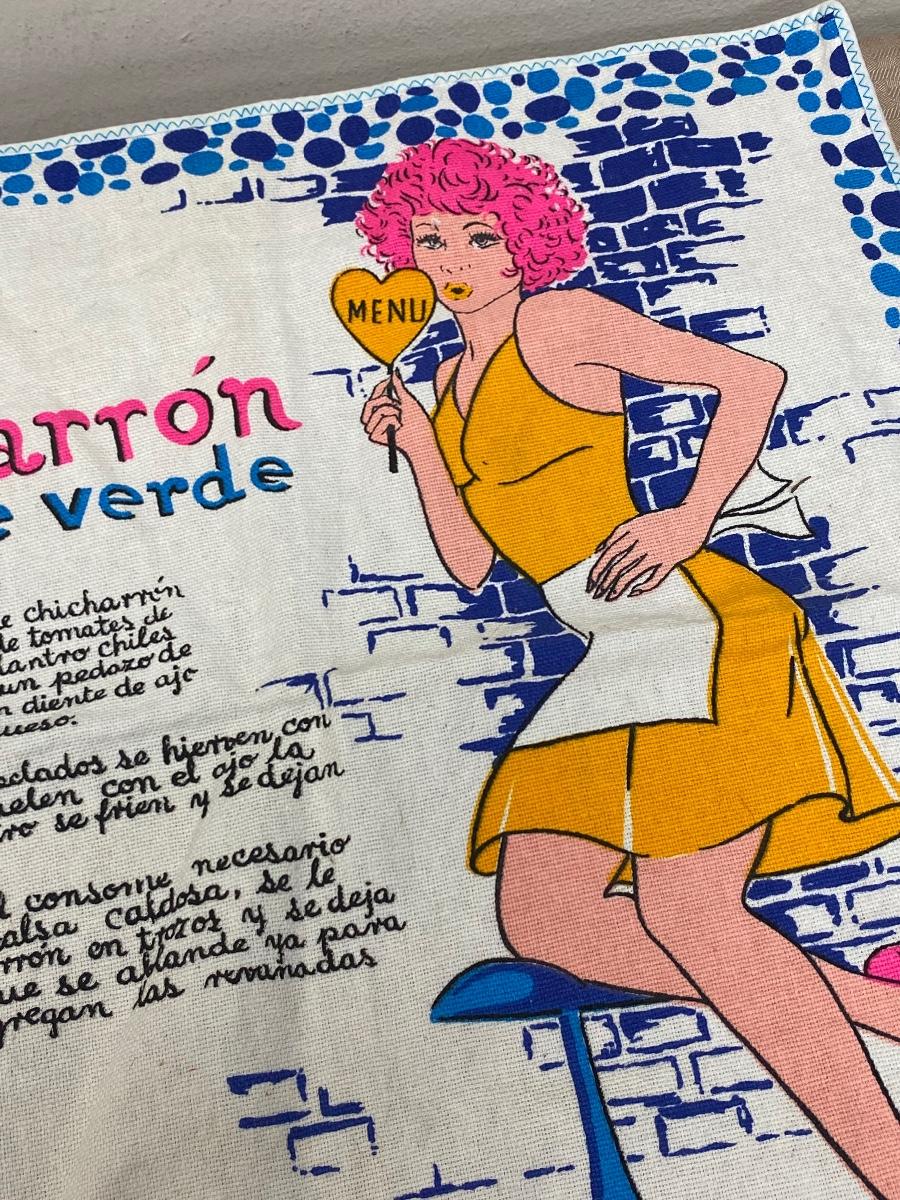 MENU
arrón
e verde
e chicharrón
de tomates de
lantro chiles
un pedazo de
n diente de ajo
ueso.
eclados se hierven con
uelen con el ajo la
tro se frien y se dejan
l consome necesario
alsa caldosa, se le
rrón en trozos y se deja
ue se ablande ya para
gregan las revanadas